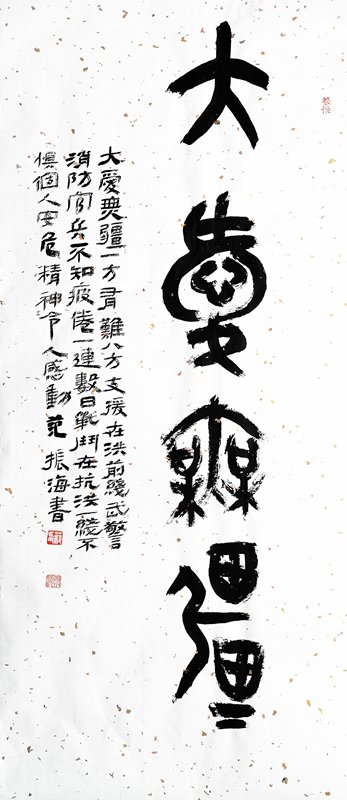 大愛無疆
大愛無疆一方有難八方支援在洪前綫武警
消防官兵不知疲倦一連數日戰鬥在抗洪一綫不
惧個人安危精神令人感動范振海書